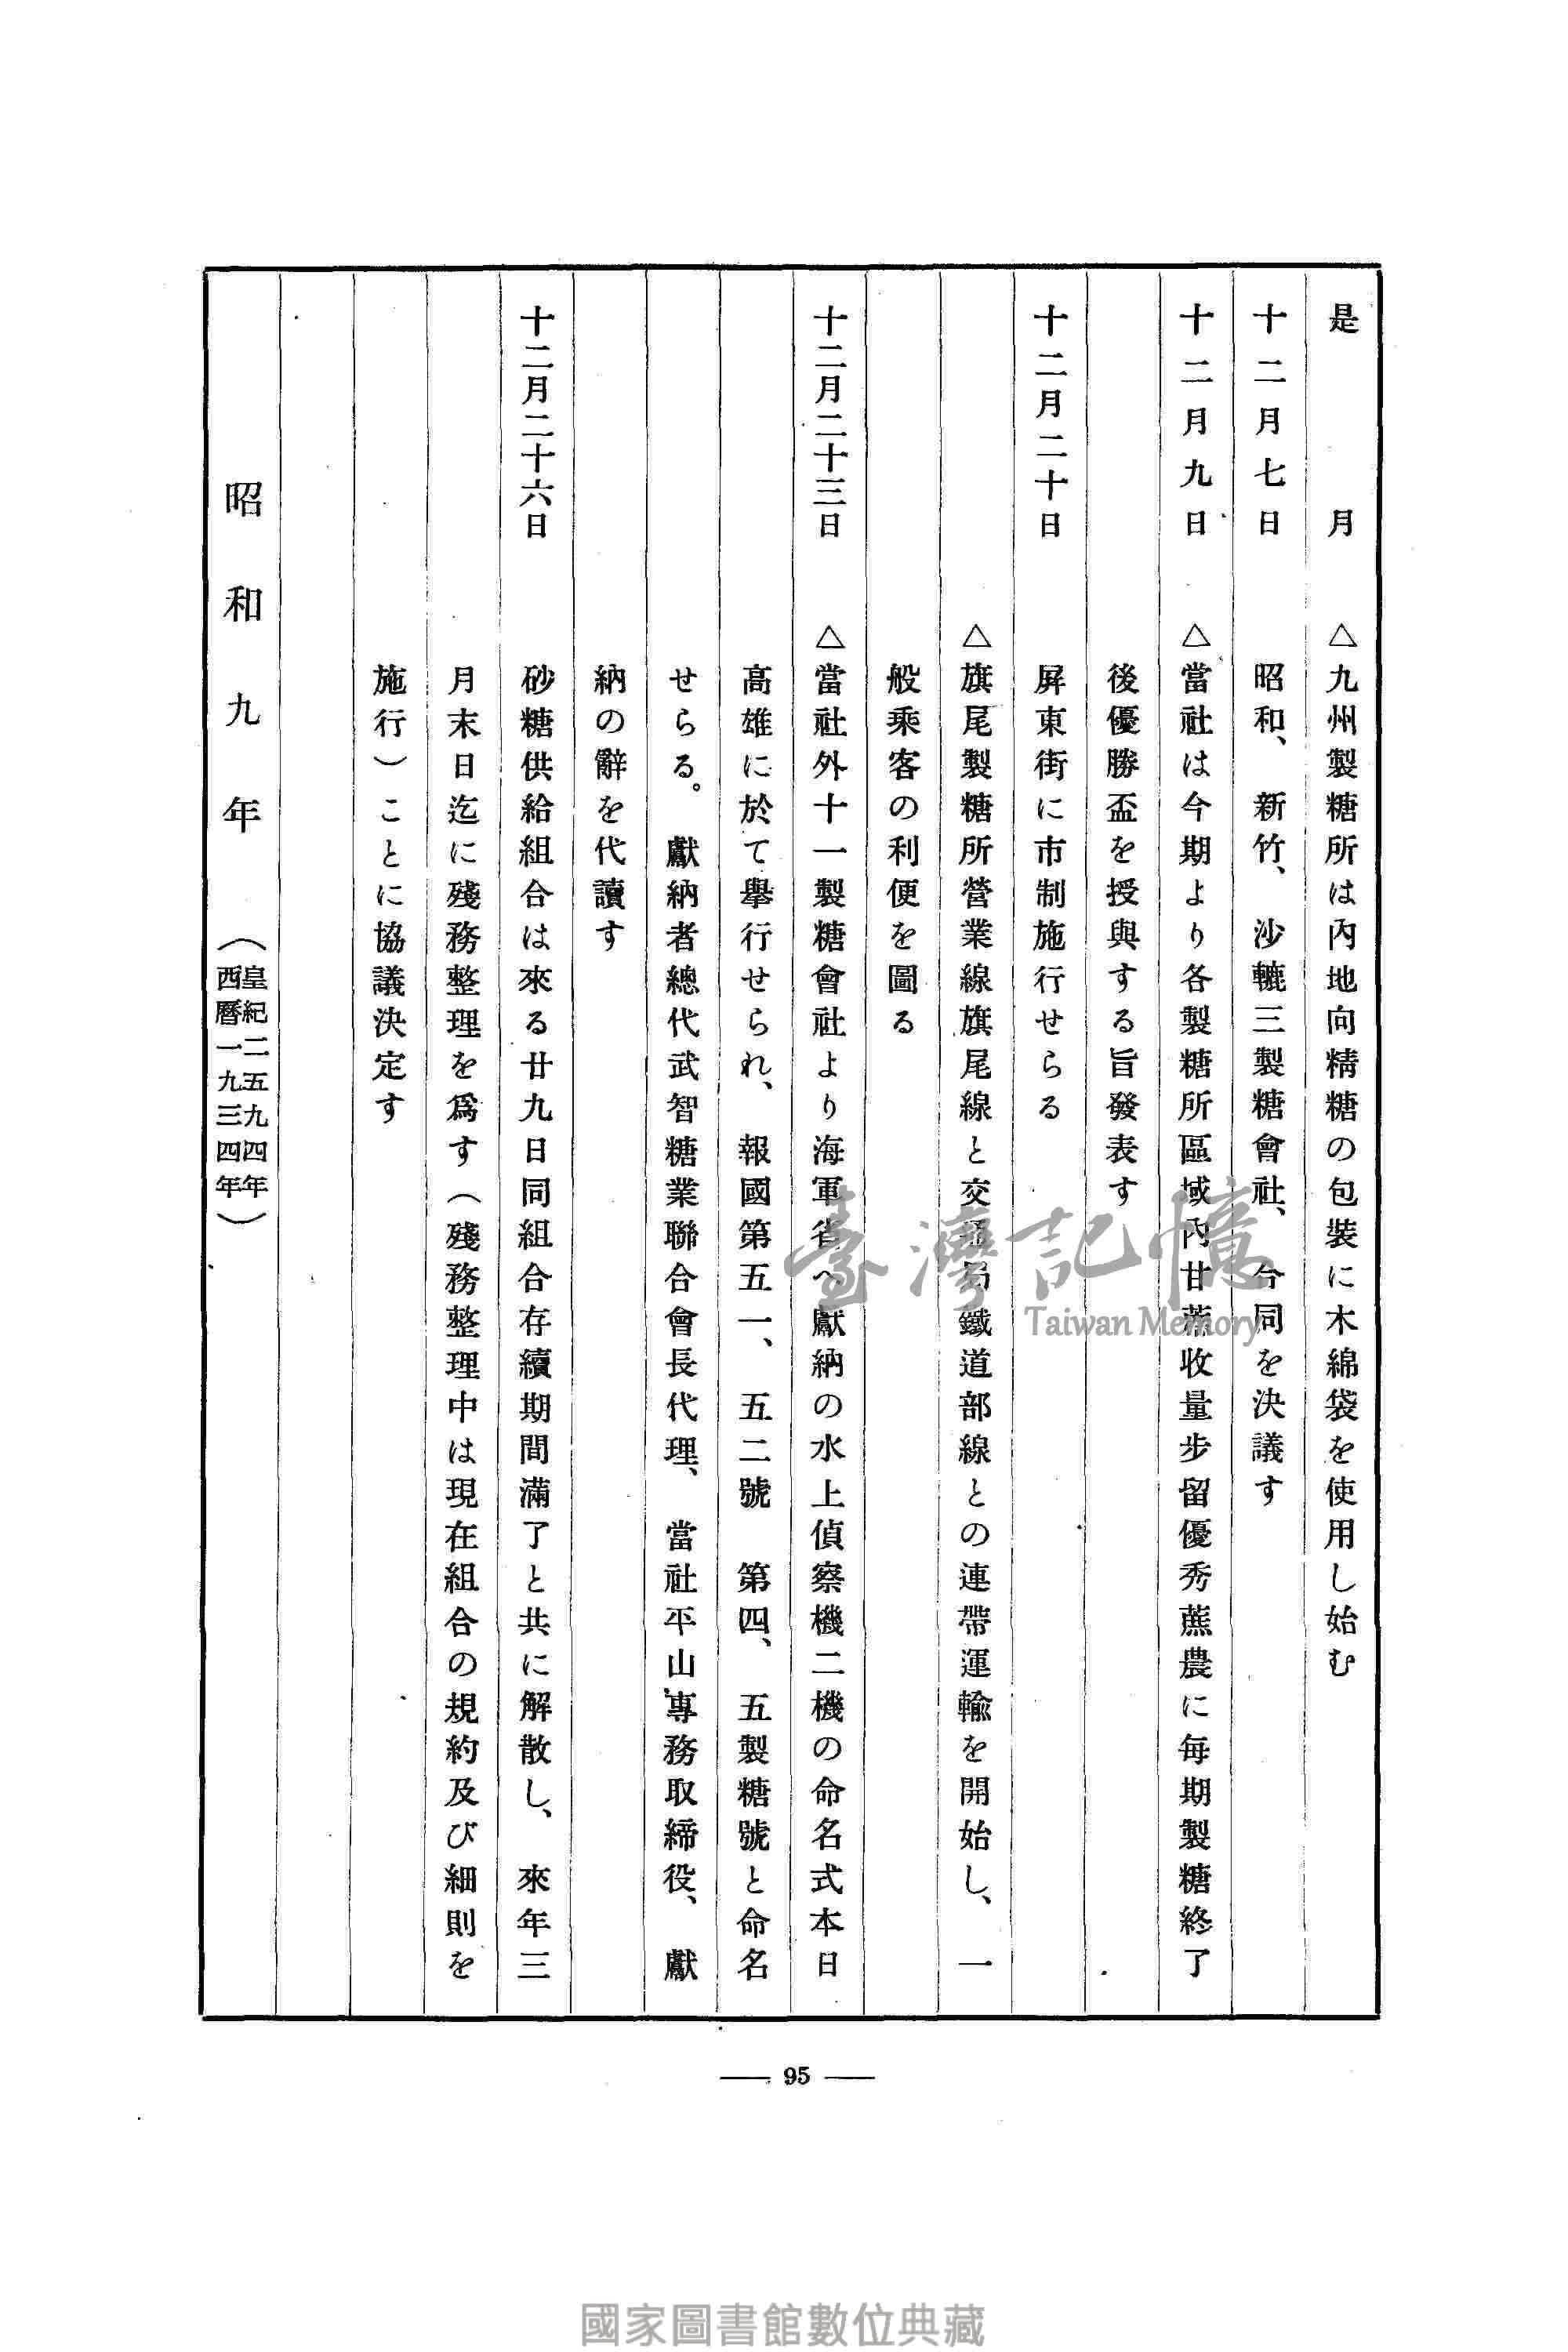 是月　△九州製糖所は內地向精糖の包裝に木綿袋を使用し始む
十二月七日　昭和、新竹、沙轆三製糖會社、合同を決議す
十二月九日　△當社は今期より各製糖所區域內甘蔗收量步留優秀蔗農に每期製糖終了
後優勝盃を授與する旨發表す
十二月二十日　屏東街に市制施行せらる
△旗尾製糖所營業線旗尾線と交通局鐵道部線との連帶運輸を開始し、一
般乘客の利便を圖る
十二月二十三日　△當社外十一製糖會社より海軍省へ獻納の水上偵察機二機の命名式本日
高雄に於て擧行せられ、報國第五一、五二號　第四、五製糖號と命名
せらる。獻納者總代武智糖業聯合會長代理、當社平山專務取締役、獻
納の辭を代讀す
十二月二十六日　砂糖供給組合は來る廿九日同組合存續期間滿了と共に解散し、來年三
月末日迄に殘務整理を爲す（殘務整理中は現在組合の規約及び細則を
施行）ことに協議決定す
昭和九年（皇紀二五九四年
西曆一九三四年）
臺灣記憶
Taiwan Memory
95
國家圖書館數位典藏